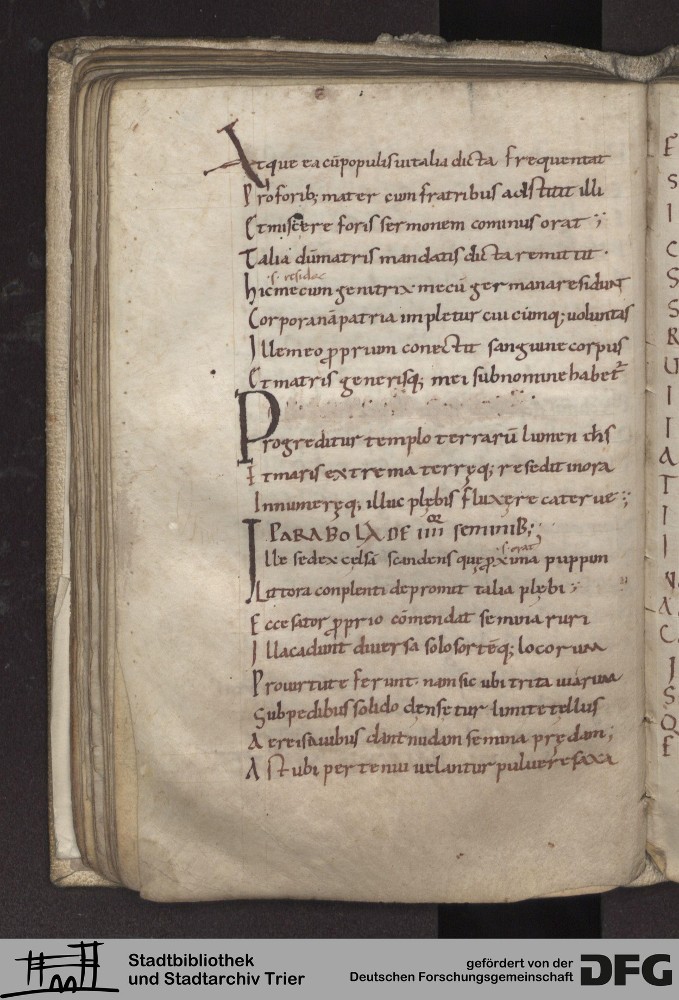 Atque ea cū populis iu talia dicta frequentat
Pro forib; mater cum fratribus adstitit illi
Et miscere foris sermonem cominus orat ;
Talia dū matris mandatis dicta remittit .
.s. residae
Hic mecum genitrix mecū germana residunt
Corpora nā patria impletur cui cūmq; voluntas
Ille meo ꝓprium conectit sanguine corpus
Et matris generisq; mei sub nomine habet᷑
Progreditur templo terrarū lumen ih̄s
Et maris extrema terręq; resedit in ora
Innumeręq; illuc plębis fluxere caterve ;
PARABOLA DE IIII SEMINIB;
.s. erat
Ille sedex celsā scandens que ꝓxima puppim
Littora conplenti depromit talia plębi ;
Ecce sator ꝓprio cōmendat semina ruri
Illa cadunt diversa solo sortēq; locorum
Pro virtute ferunt . nam sic ubi trita viarum
Sub pedibus solido densetur limite tellus
Aereis avibus dant nudam semina prędam ;
Ast ubi per tenui velantur pulvere saxa
E
S
I
C
S
S
R
U
I
I
A
T
I
I
N
A
C
I
S
O
E
Stadtbibliothek
und Stadtarchiv Trier
gefördert von der
Deutschen Forschungsgemeinschaft
DFG